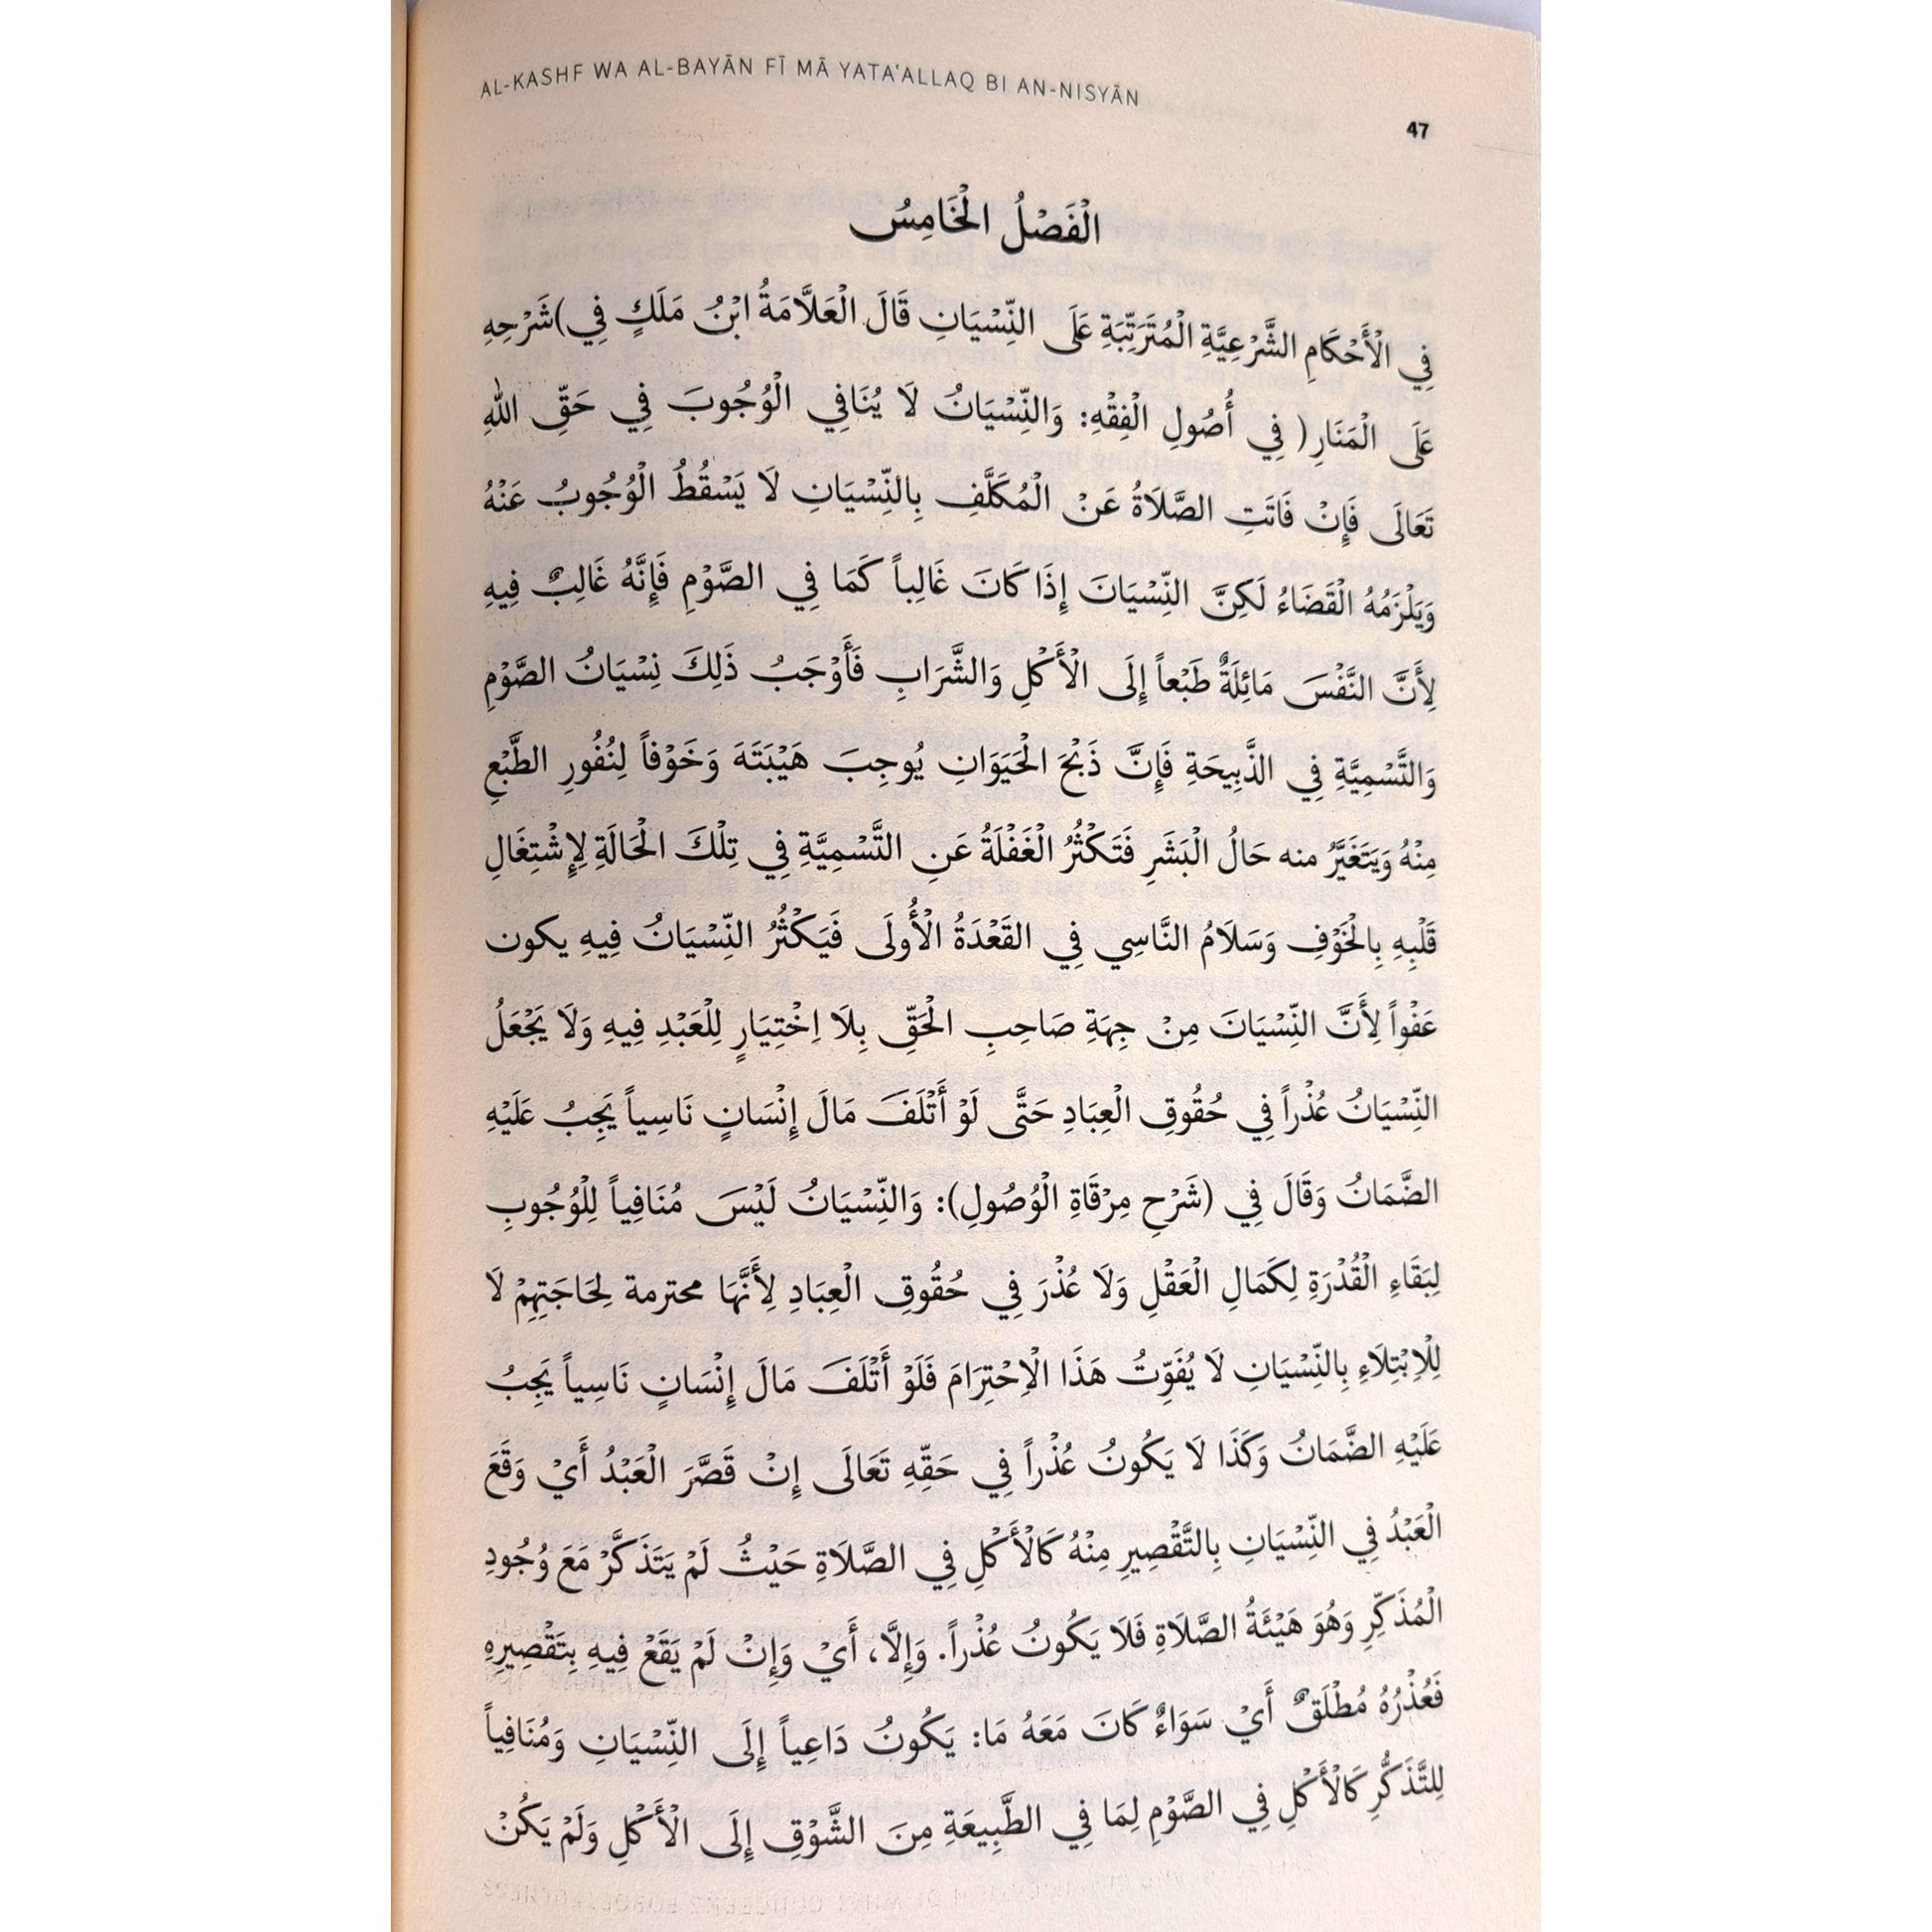 AL-KASHF WA AL-BAYĀN FĪ MĀ YATAʿALLAQ BI AN-NISYĀN
47
الْفَصْلُ الْخَامِسُ
فِي الْأَحْكَامِ الشَّرْعِيَّةِ الْمُتَرَتِّبَةِ عَلَى النِّسْيَانِ قَالَ الْعَلَّامَةُ ابْنُ مَلَكٍ فِي)شَرْحِهِ
عَلَى الْمَنَارِ( فِي أُصُولِ الْفِقْهِ: وَالنِّسْيَانُ لَا يُنَافِي الْوُجُوبَ فِي حَقِّ اللهِ
تَعَالَى فَإِنْ فَاتَتِ الصَّلَاةُ عَنْ الْمُكَلَّفِ بِالنِّسْيَانِ لَا يَسْقُطُ الْوُجُوبُ عَنْهُ
وَيَلْزَمُهُ الْقَضَاءُ لَكِنَّ النِّسْيَانَ إِذَا كَانَ غَالِباً كَمَا فِي الصَّوْمِ فَإِنَّهُ غَالِبٌ فِيهِ
لِأَنَّ النَّفْسَ مَائِلَةٌ طَبْعاً إِلَى الْأَكْلِ وَالشَّرَابِ فَأَوْجَبُ ذَلِكَ نِسْيَانُ الصَّوْمِ
وَالتَّسْمِيَّةِ فِي الذَّبِيحَةِ فَإِنَّ ذَبْحَ الْحَيَوَانِ يُوجِبَ هَيْبَتَهَ وَخَوْفاً لِنُفُورِ الطَّبْعِ
مِنْهُ وَيَتَغَيَّرُ منه حَالُ الْبَشَرِ فَتَكْثُرُ الْغَفْلَةُ عَنِ التَّسْمِيَّةِ فِي تِلْكَ الْحَالَةِ لِإِشْتِغَالِ
قَلْبِهِ بِالْخَوْفِ وَسَلَامُ النَّاسِي فِي القَعْدَةُ الْأُولَى فَيَكْثُرُ النِّسْيَانُ فِيهِ يكون
عَفْواً لِأَنَّ النِّسْيَانَ مِنْ جِهَةِ صَاحِبِ الْحَقِّ بِلَا اِخْتِيَارٍ لِلْعَبْدِ فِيهِ وَلَا يَجْعَلُ
النِّسْيَانُ عُذْراً فِي حُقُوقِ الْعِبَادِ حَتَّى لَوْ أَتْلَفَ مَالَ إِنْسَانٍ نَاسِياً يَجِبُ عَلَيْهِ
الضَّمَانُ وَقَالَ فِي (شَرْحِ مِرْقَاةِ الْوُصُولِ): وَالنِّسْيَانُ لَيْسَ مُنَافِياً لِلْوُجُوبِ
لِبَقَاءِ الْقُدْرَةِ لِكَمَالِ الْعَقْلِ وَلَا عُذْرَ فِي حُقُوقِ الْعِبَادِ لِأَنَّهَا محترمة لِحَاجَتِهِمْ لَا
لِلْاِبْتِلَاءِ بِالنِّسْيَانِ لَا يُفَوِّتُ هَذَا الْاِحْتِرَامَ فَلَوْ أَتْلَفَ مَالَ إِنْسَانٍ نَاسِياً يَجِبُ
عَلَيْهِ الضَّمَانُ وَكَذَا لَا يَكُونُ عُذْراً فِي حَقِّهِ تَعَالَى إِنْ قَصَّرَ الْعَبْدُ أَيْ وَقَعَ
الْعَبْدُ فِي النِّسْيَانِ بِالتَّقْصِيرِ مِنْهُ كَالْأَكْلِ فِي الصَّلَاةِ حَيْثُ لَمْ يَتَذَكَّرْ مَعَ وُجُودِ
الْمُذَكِّرِ وَهُوَ هَيْئَةُ الصَّلَاةِ فَلَا يَكُونُ عُذْراً. وَإِلَّا، أَيْ وَإِنْ لَمْ يَقَعْ فِيهِ بِتَقْصِيرِهِ
فَعُذْرُهُ مُطْلَقٌ أَيْ سَوَاءٌ كَانَ مَعَهُ مَا: يَكُونُ دَاعِياً إِلَى النِّسْيَانِ وَمُنَافِياً
لِلتَّذَكُّرِ كَالْأَكْلِ فِي الصَّوْمِ لِمَا فِي الطَّبِيعَةِ مِنَ الشَّوْقِ إِلَى الْأَكْلِ وَلَمْ يَكُنْ